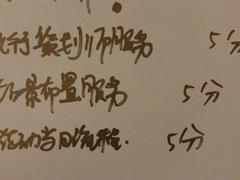 行策划师服务 5分
场景布置服务 5分
活动当日流程. 5分